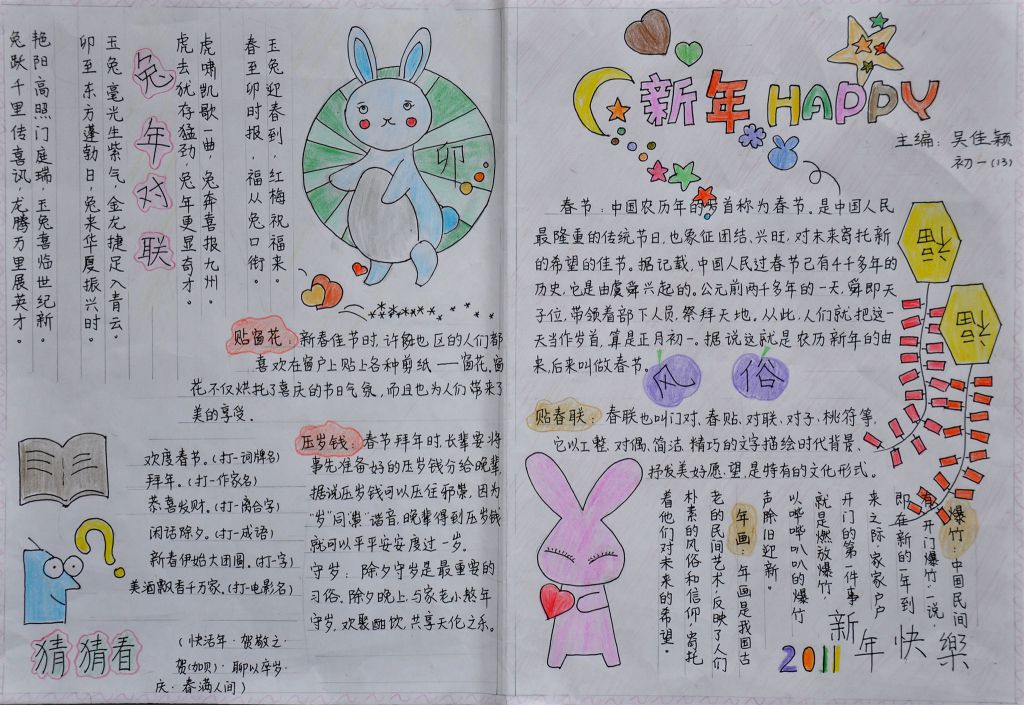 艳阳高照门庭瑞 玉兔喜临世纪新
兔跃千里传喜讯，龙腾万里展英才。
玉兔毫光生紫气 金龙捷足入青云
卯至东方蓬勃日，兔来华夏振兴时
兔年对联
虎啸凯歌一曲，兔奔喜报九州。
虎去犹存猛劲 兔年更显奇才。
玉兔迎春到，红梅祝福来。
春至卯时报，福从兔口衔。
卯
贴窗花：新春佳节时，许多地区的人们都
喜欢在窗户上贴上各种剪纸——窗花。窗
花不仅烘托了喜庆的节日气氛，而且也为人们带来了
美的享受。
欢度春节。（打一词牌名）
拜年。（打一作家名）
恭喜发财。（打一离合字）
闲话除夕。（打一成语）
新春伊始大团圆。（打一字）
美酒飘香千万家。（打一电影名）
猜猜看
（快活年·贺敬之·
贺(加贝)·聊以卒岁·
庆·春满人间）
压岁钱：春节拜年时，长辈要将
事先准备好的压岁钱分给晚辈，
据说压岁钱可以压住邪祟，因为
“岁”同“祟”谐音，晚辈得到压岁钱
就可以平平安安度过一岁。
守岁：除夕守岁是最重要的
习俗。除夕晚上，与家老小熬年
守岁，欢聚酣饮，共享天伦之乐。
新年HAPPY
主编：吴佳颖
初一(13)
春节：中国农历年的岁首称为春节。是中国人民
最隆重的传统节日，也象征团结、兴旺，对未来寄托新
的希望的佳节。据记载，中国人民过春节已有4千多年的
历史，它是由虞舜兴起的。公元前两千多年的一天，舜即天
子位，带领着部下人员，祭拜天地。从此，人们就把这一
天当作岁首，算是正月初一。据说这就是农历新年的由
来，后来叫做春节。
福
福
风俗
贴春联：春联也叫门对、春贴、对联、对子、桃符等，
它以工整、对偶、简洁、精巧的文字描绘时代背景、
抒发美好愿望，是特有的文化形式。
爆竹：中国民间
有“开门爆竹”一说
即在新的一年到
来之际，家家户户
开门的第一件事
就是燃放爆竹
以哔哔叭叭的爆竹
声除旧迎新。
年画：年画是我国古
老的民间艺术，反映了人们
朴素的风俗和信仰，寄托
着他们对未来的希望。
2011
新年快樂